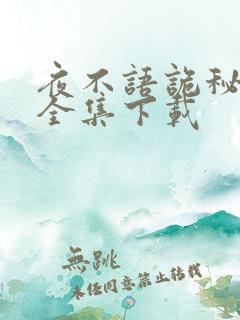 夜不語詭秘
全集下載
無跳
未经同意禁止转载